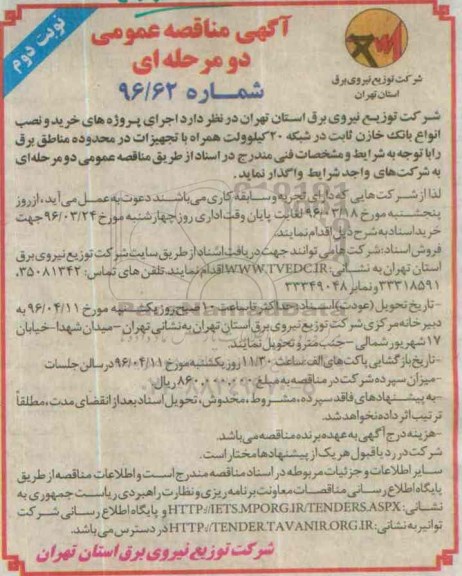 نوبت دوم
آگهی مناقصه عمومی
دو مرحله ای
شماره ۹۶/۶۲
شرکت توزیع نیروی برق
استان تهران
شرکت توزیع نیروی برق استان تهران در نظر دارد اجرای پروژه های خرید و نصب
انواع بانک خازن ثابت در شبکه ۲۰ کیلوولت همراه با تجهیزات در محدوده مناطق برق
را با توجه به شرایط و مشخصات فنی مندرج در اسناد از طریق مناقصه عمومی دو مرحله ای
به شرکت های واجد شرایط واگذار نماید.
لذا از شرکت هایی که دارای تجربه و سابقه کاری می باشند دعوت به عمل می آید، از روز
پنجشنبه مورخ ۹۶/۰۳/۱۸ لغایت پایان وقت اداری روز چهارشنبه مورخ ۹۶/۰۳/۲۴ جهت
خرید اسناد به شرح ذیل اقدام نمایند.
فروش اسناد: شرکت ها می توانند جهت دریافت اسناد از طریق سایت شرکت توزیع نیروی برق
استان تهران به نشانی: WWW.TVEDC.IR اقدام نمایند. تلفن های تماس: ۳۵۰۸۱۳۴۲،
۳۳۳۱۸۵۹۱ و نمابر ۳۳۳۴۹۰۴۸
-تاریخ تحویل (عودت) اسناد: حداکثر تا ساعت ۱۰ صبح روز یکشنبه مورخ ۹۶/۰۴/۱۱ به
دبیرخانه مرکزی شرکت توزیع نیروی برق استان تهران به نشانی تهران-میدان شهدا-خیابان
۱۷ شهریور شمالی-جنب مترو تحویل نمایند.
-تاریخ بازگشایی پاکت های الف: ساعت ۱۱/۳۰ روز یکشنبه مورخ ۹۶/۰۴/۱۱ در سالن جلسات
-میزان سپرده شرکت در مناقصه به مبلغ ریال.
-به پیشنهادهای فاقد سپرده، مشروط، مخدوش، تحویل اسناد بعد از انقضای مدت، مطلقاً
ترتیب اثر داده نخواهد شد.
-هزینه درج آگهی به عهده برنده مناقصه می باشد.
شرکت در رد یا قبول هر یک از پیشنهادها مختار است.
سایر اطلاعات و جزئیات مربوطه در اسناد مناقصه مندرج است و اطلاعات مناقصه از طریق
پایگاه اطلاع رسانی مناقصات معاونت برنامه ریزی و نظارت راهبردی ریاست جمهوری به
نشانی: HTTP://IETS.MPORG.IR/TENDERS.ASPX و پایگاه اطلاع رسانی شرکت
توانیر به نشانی: HTTP://TENDER.TAVANIR.ORG.IR در دسترس می باشد.
شرکت توزیع نیروی برق استان تهران